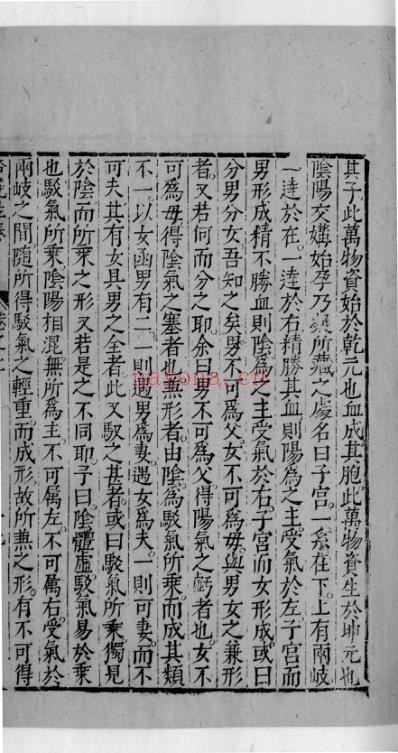 其子此萬物資始於乾元也血成其胞此萬物資生於坤元也
陰陽交媾始孕乃凝所藏之處名曰子宮一系在下上有兩岐
一達於左一達於右精勝其血則陽爲之主受氣於左子宮而
男形成精不勝血則陰爲之主受氣於右子宮而女形成或曰
分男分女吾知之矣男不可爲父女不可爲母與男女之兼形
者又若何而分之耶余曰男不可爲父得陽氣之虧者也女不
可爲母得陰氣之塞者也兼形者由陰爲駁氣所乘而成其類
不一以女函男有二一則遇男爲妻遇女爲夫一則可妻而不
可夫其有女具男之全者此又駁之甚者或曰駁氣所乘獨見
於陰而所乘之形又若是之不同耶予曰陰體虛駁氣易於乘
也駁氣所乘陰陽相混無所爲主不可屬左不可屬右受氣於
兩岐之間隨所得駁氣之輕重而成形故所兼之形有不可得
nayona.cn